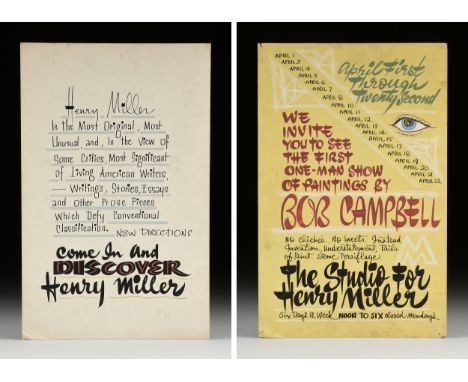 Henry Miller
Is the Most Original, Most
Unusual and, In the View of
Some Critics, Most Significant
of Living American Writers.
— Writings, Stories, Essays
and Other Prose Pieces
Which Defy Conventional
Classification.
NEW DIRECTIONS
Come In And
DISCOVER
Henry Miller
APRIL 1
APRIL 3
APRIL 4
APRIL 5
APRIL 6
APRIL 7
APRIL 8
APRIL 10
APRIL 11
APRIL 12
APRIL 13
APRIL 14
APRIL 15
APRIL 17
APRIL 18
APRIL 19
APRIL 20
APRIL 21
APRIL 22
April First
Through
Twenty Second
WE
INVITE
YOU TO SEE
THE FIRST
ONE-MAN SHOW
OF PAINTINGS BY
BOB CAMPBELL
No Cliches. No Sweets. Instead
Invention, Understatement, Pails
of Paint. Some Persiflage.
The Studio For
Henry Miller
Six Days A Week NOON TO SIX Closed Mondays